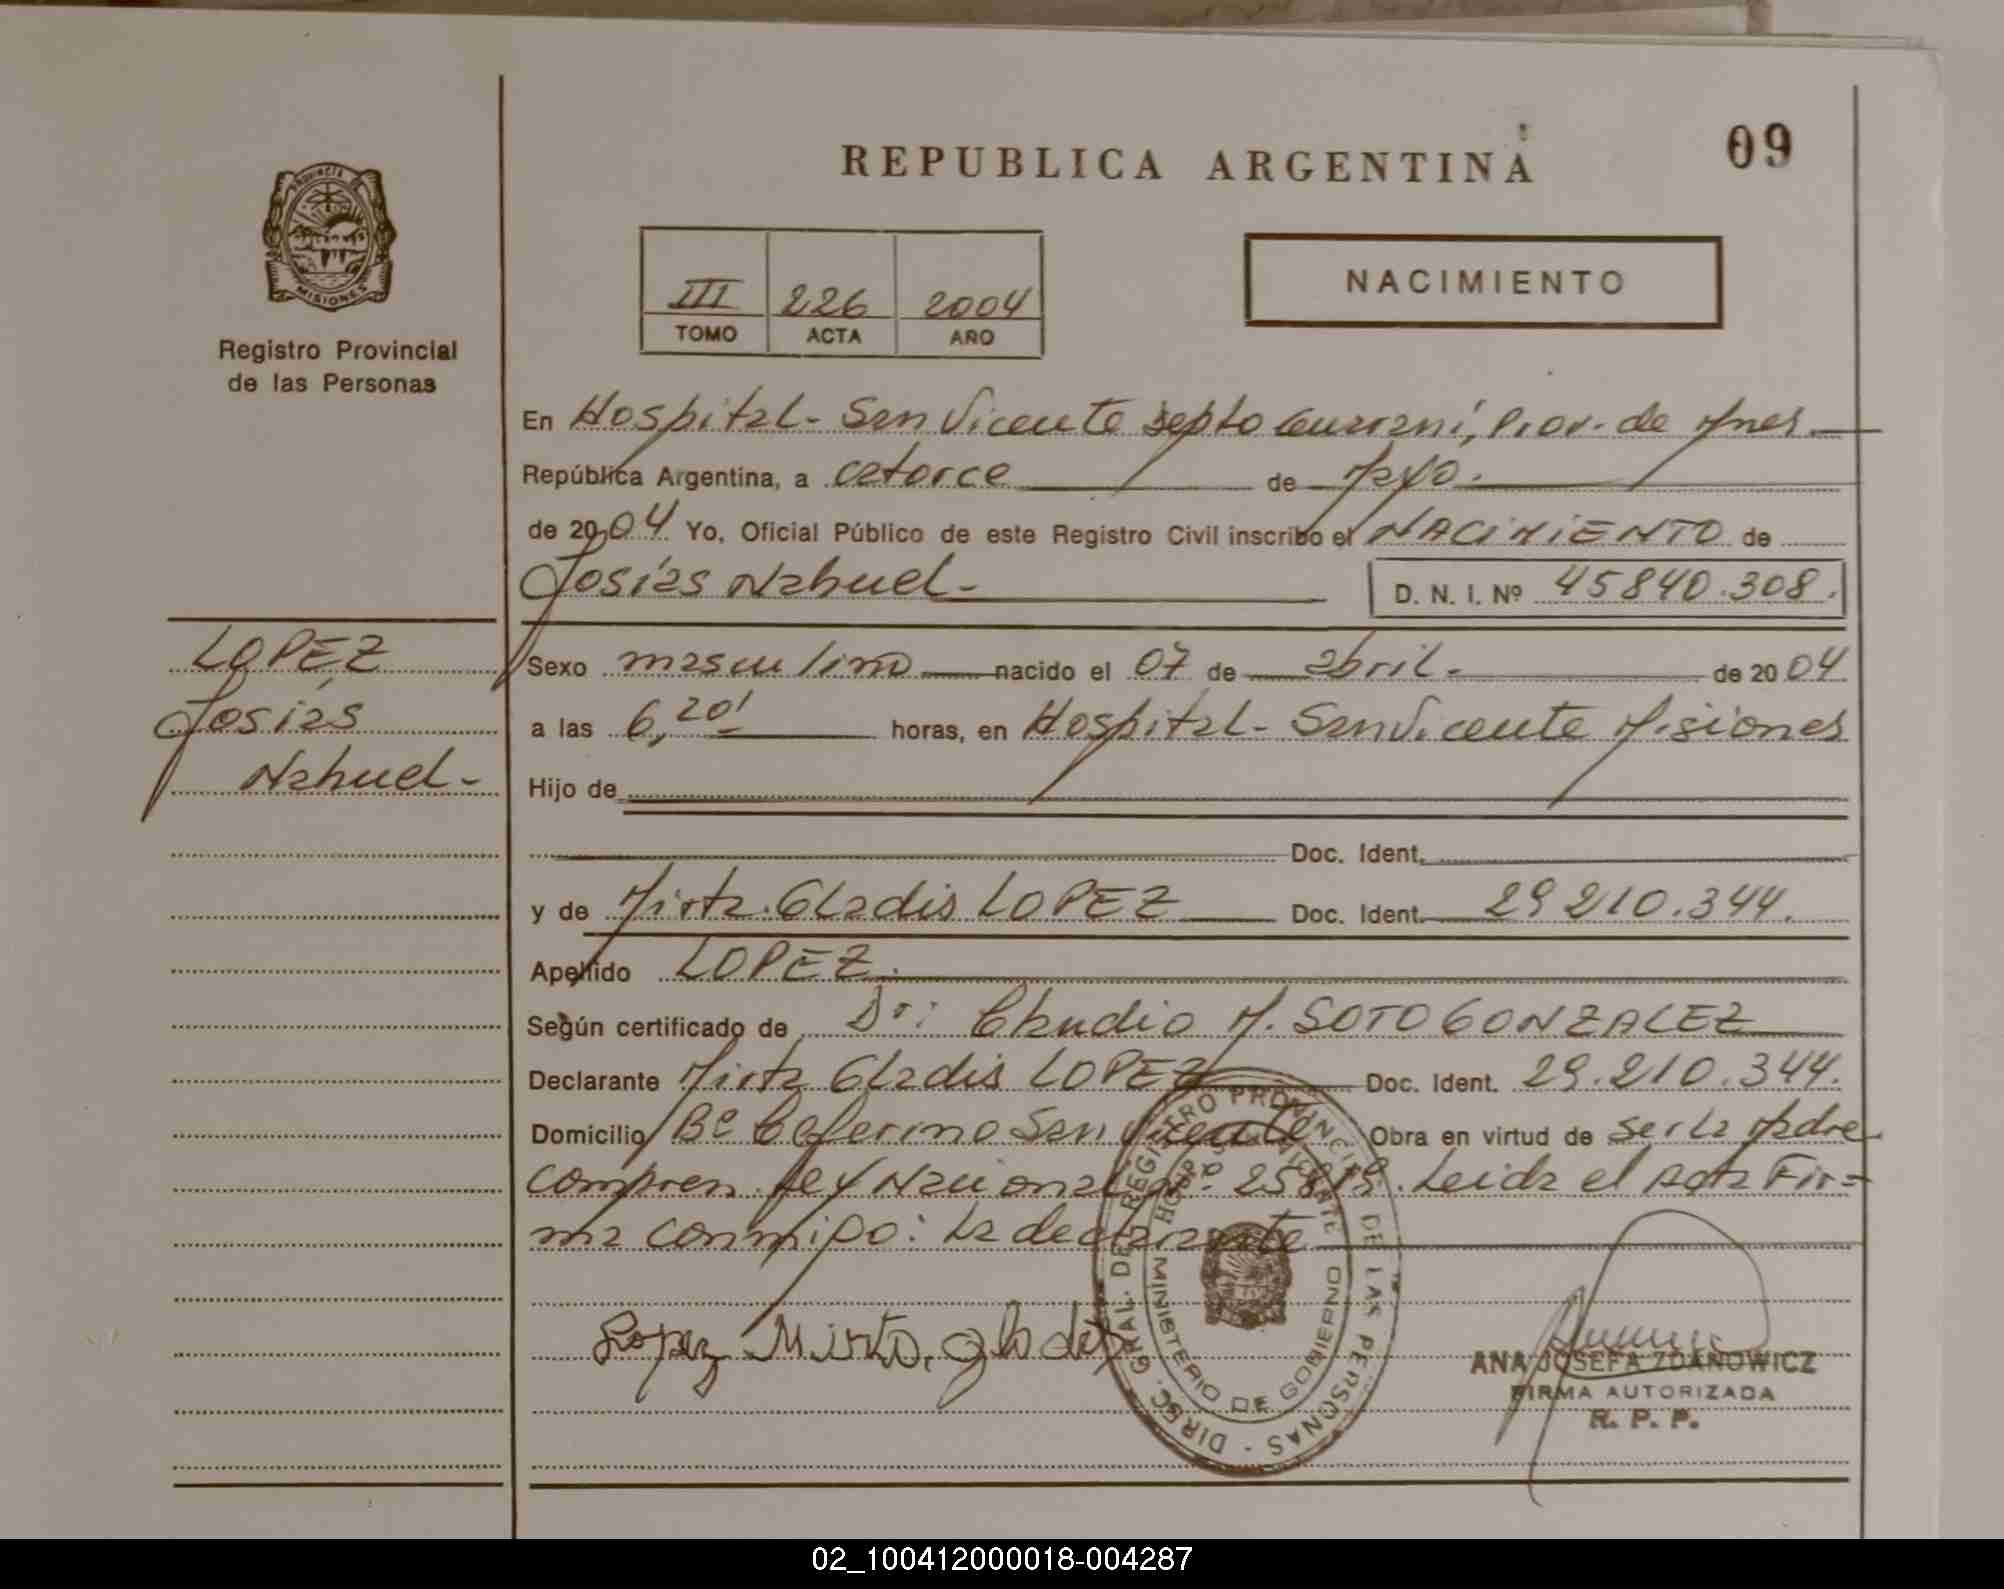 REPUBLICA ARGENTINA
09
PROVINCIA DE
MISIONES
Registro Provincial
de las Personas
III 226 2004
TOMO ACTA AÑO
NACIMIENTO
En Hospital - San Vicente Depto Guaraní, Prov. de Mnes
República Argentina, a catorce de Mayo.
de 2004 Yo, Oficial Público de este Registro Civil inscribo el NACIMIENTO de
Josías Nahuel - D. N. I. Nº 45840.308.
LOPEZ
Josías
Nahuel -
Sexo masculino nacido el 07 de abril - de 2004
a las 6,20' horas, en Hospital - San Vicente Misiones
Hijo de
Doc. Ident.
y de Mirta Gladis LOPEZ Doc. Ident. 29 210.344.
Apellido LOPEZ.
Según certificado de Dr: Claudio M. SOTO GONZALEZ
Declarante Mirta Gladis LOPEZ Doc. Ident. 29.210.344.
Domicilio Bº Ceferino San Vicente Obra en virtud de ser la Madre
compren. Ley Nacional nº Leida el Acta Fir=
ma conmigo: La declarante
Lopez Mirta, gladis
DIREC. GRAL. DEL REGISTRO PROVINCIAL DE LAS PERSONAS
MINISTERIO DE GOBIERNO
HOSP. S. VICENTE
ANA JOSEFA ZDANOWICZ
FIRMA AUTORIZADA
R. P. P.
02_100412000018-004287